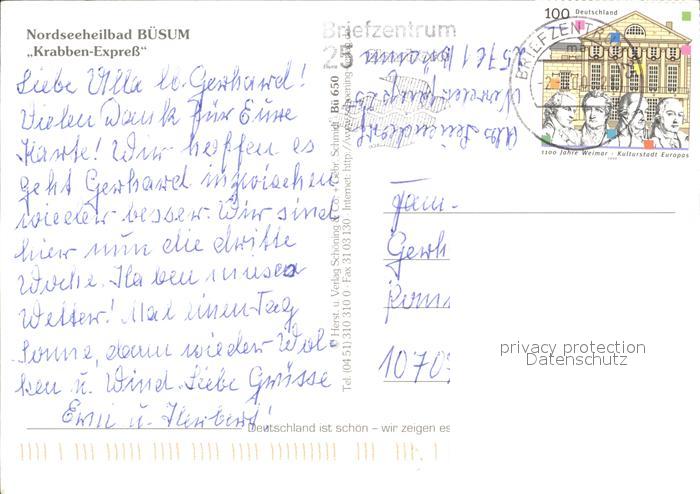 Nordseeheilbad BÜSUM
„Krabben-Expreß“
Liebe Ulla u. Gerhard!
Vielen Dank für Eure
Karte! Wir hoffen es
geht Gerhard inzwischen
wieder besser. Wir sind
hier nun die dritte
Woche. Haben
Wetter! Mal einen Tag
Sonne, dann wieder Wol-
ken u. Wind. Liebe Grüsse
Erni u. Herbert!
Deutschland ist schön – wir zeigen es
© Herst. u. Verlag Schöning & Co. + Gebr. Schmidt
Bü 650
Tel. (04 51) 310 310 0 · Fax 31 03 130 · Internet: http://www.schoening
Briefzentrum
25
BRIEFZENTRUM
100 Deutschland
1100 Jahre Weimar · Kulturstadt Europas
1999
Fam.
Gerh
1070
privacy protection
Datenschutz